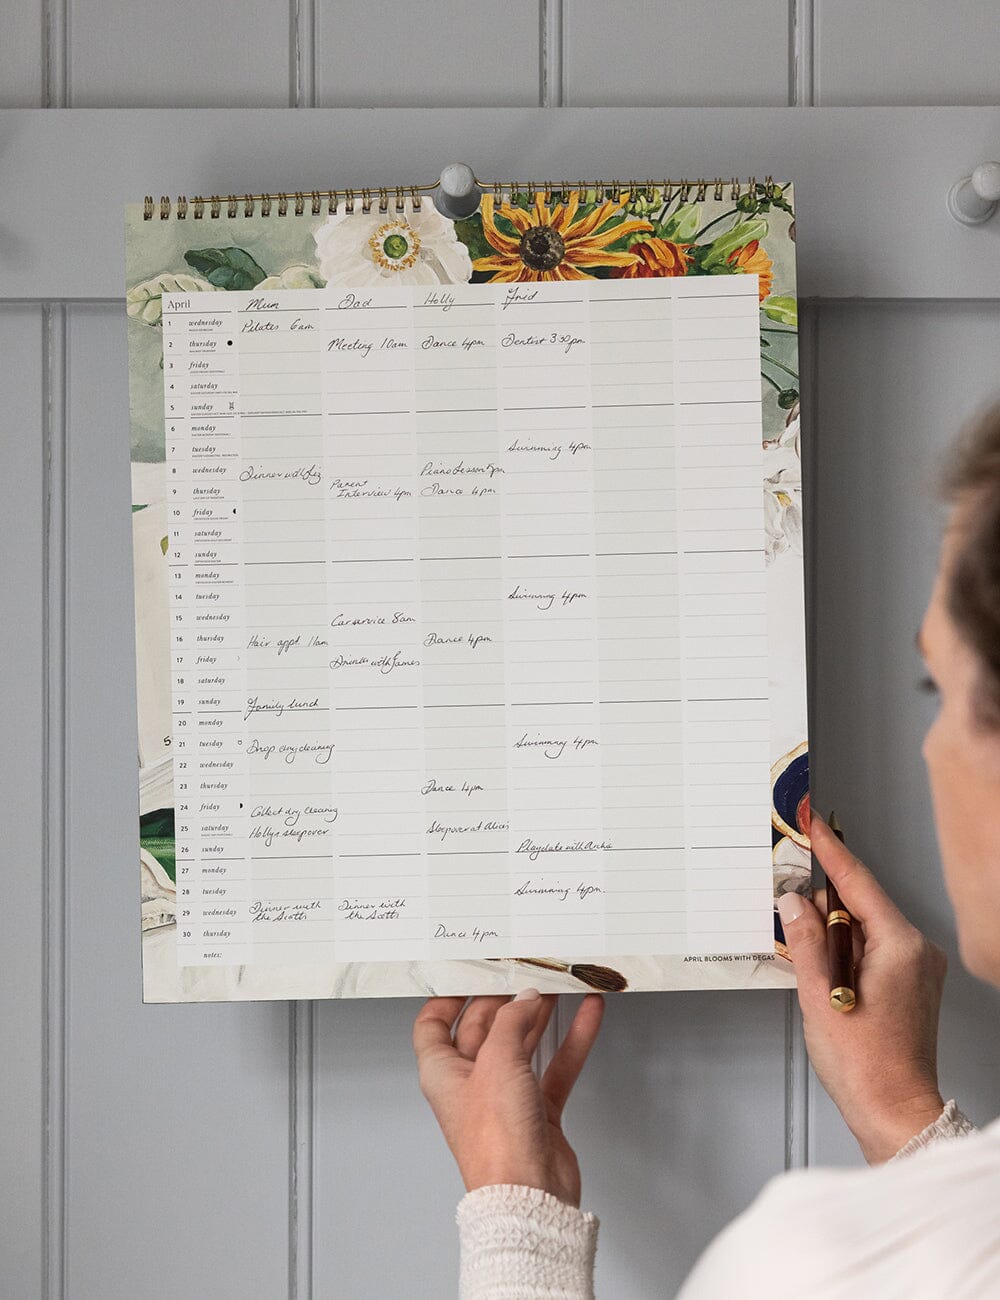 April Mum Dad Holly Fred
1 wednesday Pilates 6am
2 thursday Meeting 10am Dance 4pm Dentist 3:30pm
3 friday
4 saturday
5 sunday
6 monday
7 tuesday Swimming 4pm
8 wednesday Dinner with Liz Piano Lesson 5pm
9 thursday Parent
Interview 4pm Dance 4pm
10 friday
11 saturday
12 sunday
13 monday
14 tuesday Swimming 4pm
15 wednesday Car service 8am
16 thursday Hair appt. 11am Dance 4pm
17 friday Drinks with James
18 saturday
19 sunday Family Lunch
20 monday
21 tuesday Drop dry cleaning Swimming 4pm
22 wednesday
23 thursday Dance 4pm
24 friday Collect dry cleaning
25 saturday Hollys sleepover Sleepover at Alice's
26 sunday Playdate with Archie
27 monday
28 tuesday Swimming 4pm.
29 wednesday Dinner with Dinner with
the Scotts the Scotts
30 thursday Dance 4pm
notes:
APRIL BLOOMS WITH DEGAS